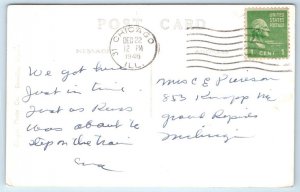 POST CARD
CHICAGO
DEC 22
12 PM
1948
ILL.
1 CENT 1
We got here
Just in time.
Just as Russ
was about to
step on the train
Mrs C E Pierson
853 Knapp NE
Grand Rapids
Michigan